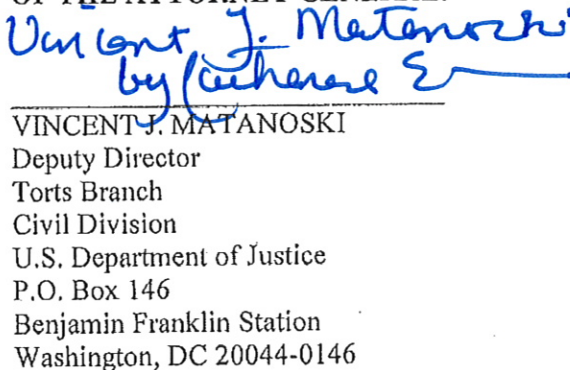 OF THE ATTORNEY GENERAL
Vincent J. Matanoski
by Catharine E
VINCENT J. MATANOSKI
Deputy Director
Torts Branch
Civil Division
U.S. Department of Justice
P.O. Box 146
Benjamin Franklin Station
Washington, DC 20044-0146